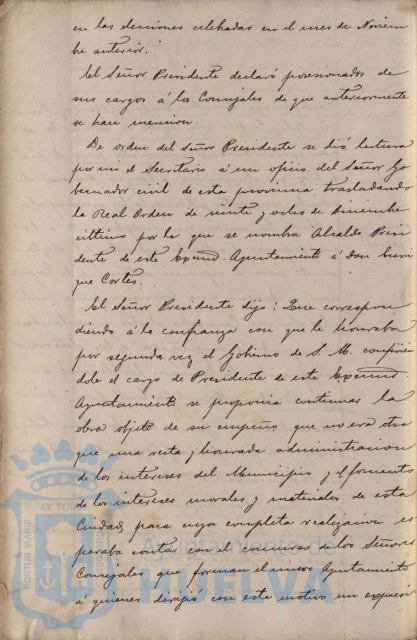 en las elecciones celebradas en el mes de Noviem
bre anterior.
El Señor Presidente declaró posesionados de
sus cargos á los Concejales de que anteriormente
se hace mencion.
De orden del Señor Presidente se dió lectura
por mi el Secretario á un oficio del Señor Go
bernador civil de esta provincia trasladando
la Real Orden de veinte y ocho de Diciembre
último por la que se nombra Alcalde Presi
dente de este Excmo. Ayuntamiento á don Enri
que Cortes.
El Señor Presidente dijo: Que correspon
diendo á la confianza con que le honraba
por segunda vez el Gobierno de S. M. confirien
dole el cargo de Presidente de este Excmo.
Ayuntamiento se proponia continuar la
obra objeto de su empeño que no era otra
que una recta y honrada administracion
de los intereses del Municipio y el fomento
de los intereses morales y materiales de esta
Ciudad, para cuya completa realizacion es
peraba contar con el concurso de los Señores
Concejales que forman el nuevo Ayuntamiento
á quienes dirigió con este motivo un expresi
Ayuntamiento de
HUELVA
PORTUS MARIS
ET TERRAE